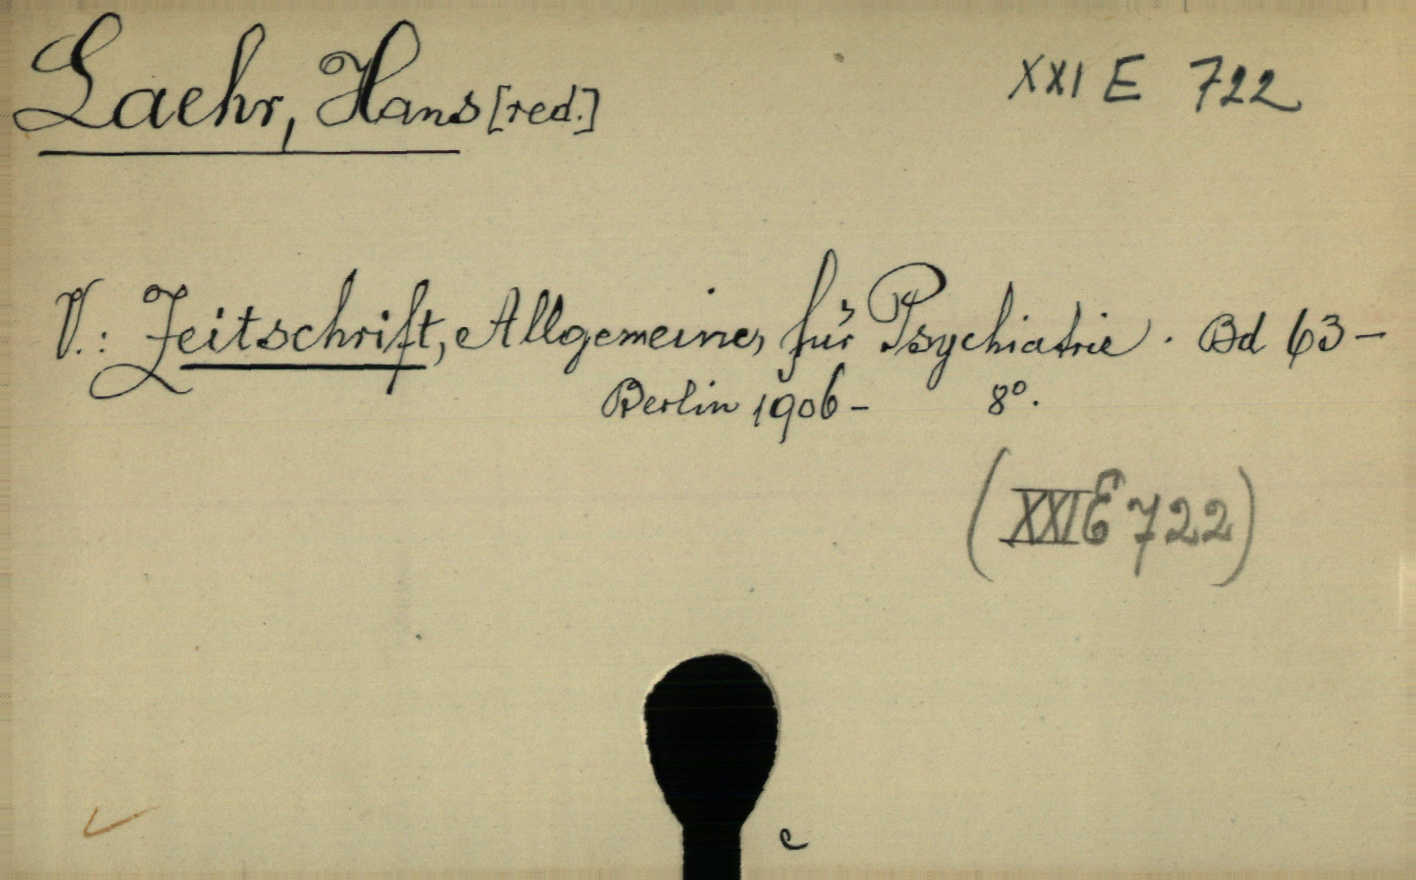 Laehr, Hans [red.] XXI E 722
V.: Zeitschrift, Allgemeine, für Psychiatrie. Bd 63-
Berlin 1906- 8º.
(XXI E 722)
e